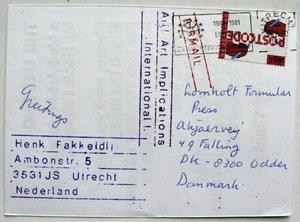 Any Art Implications
International!
AIRMAIL
1981 1981
POSTCODE
Greetings
Henk Fakkeldij
Ambonstr. 5
3531JS Utrecht
Nederland
Lomholt Formular
Press
49 Falling
DK-8300 Odder
Danmark